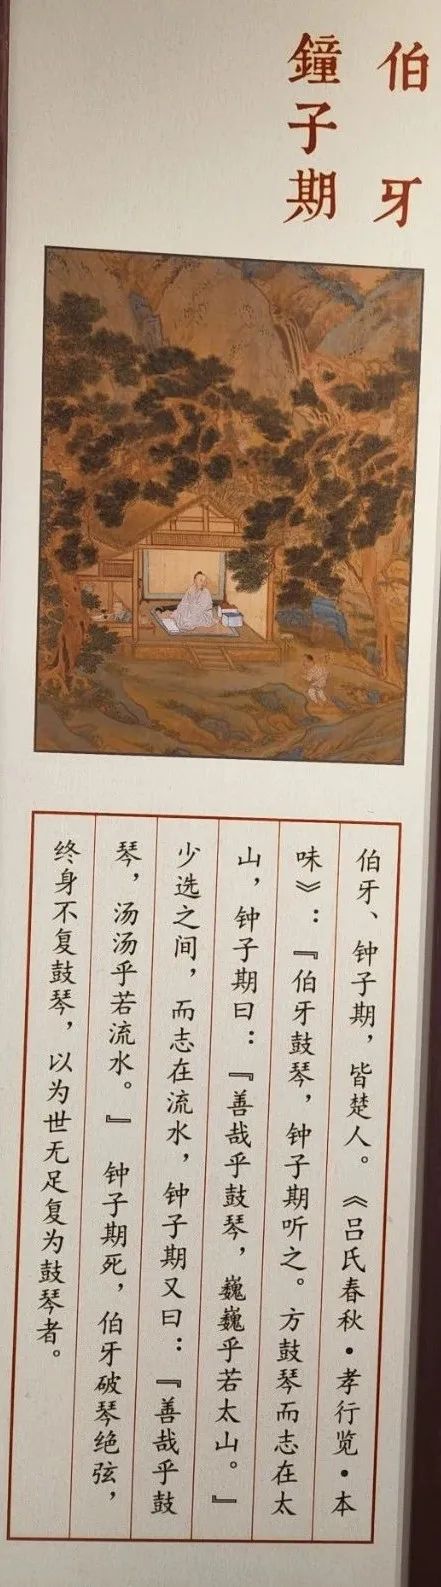 伯牙
鐘子期
伯牙、钟子期，皆楚人。《吕氏春秋·孝行览·本
味》：『伯牙鼓琴，钟子期听之。方鼓琴而志在太
山，钟子期曰：『善哉乎鼓琴，巍巍乎若太山。』
少选之间，而志在流水，钟子期又曰：『善哉乎鼓
琴，汤汤乎若流水。』钟子期死，伯牙破琴绝弦，
终身不复鼓琴，以为世无足复为鼓琴者。